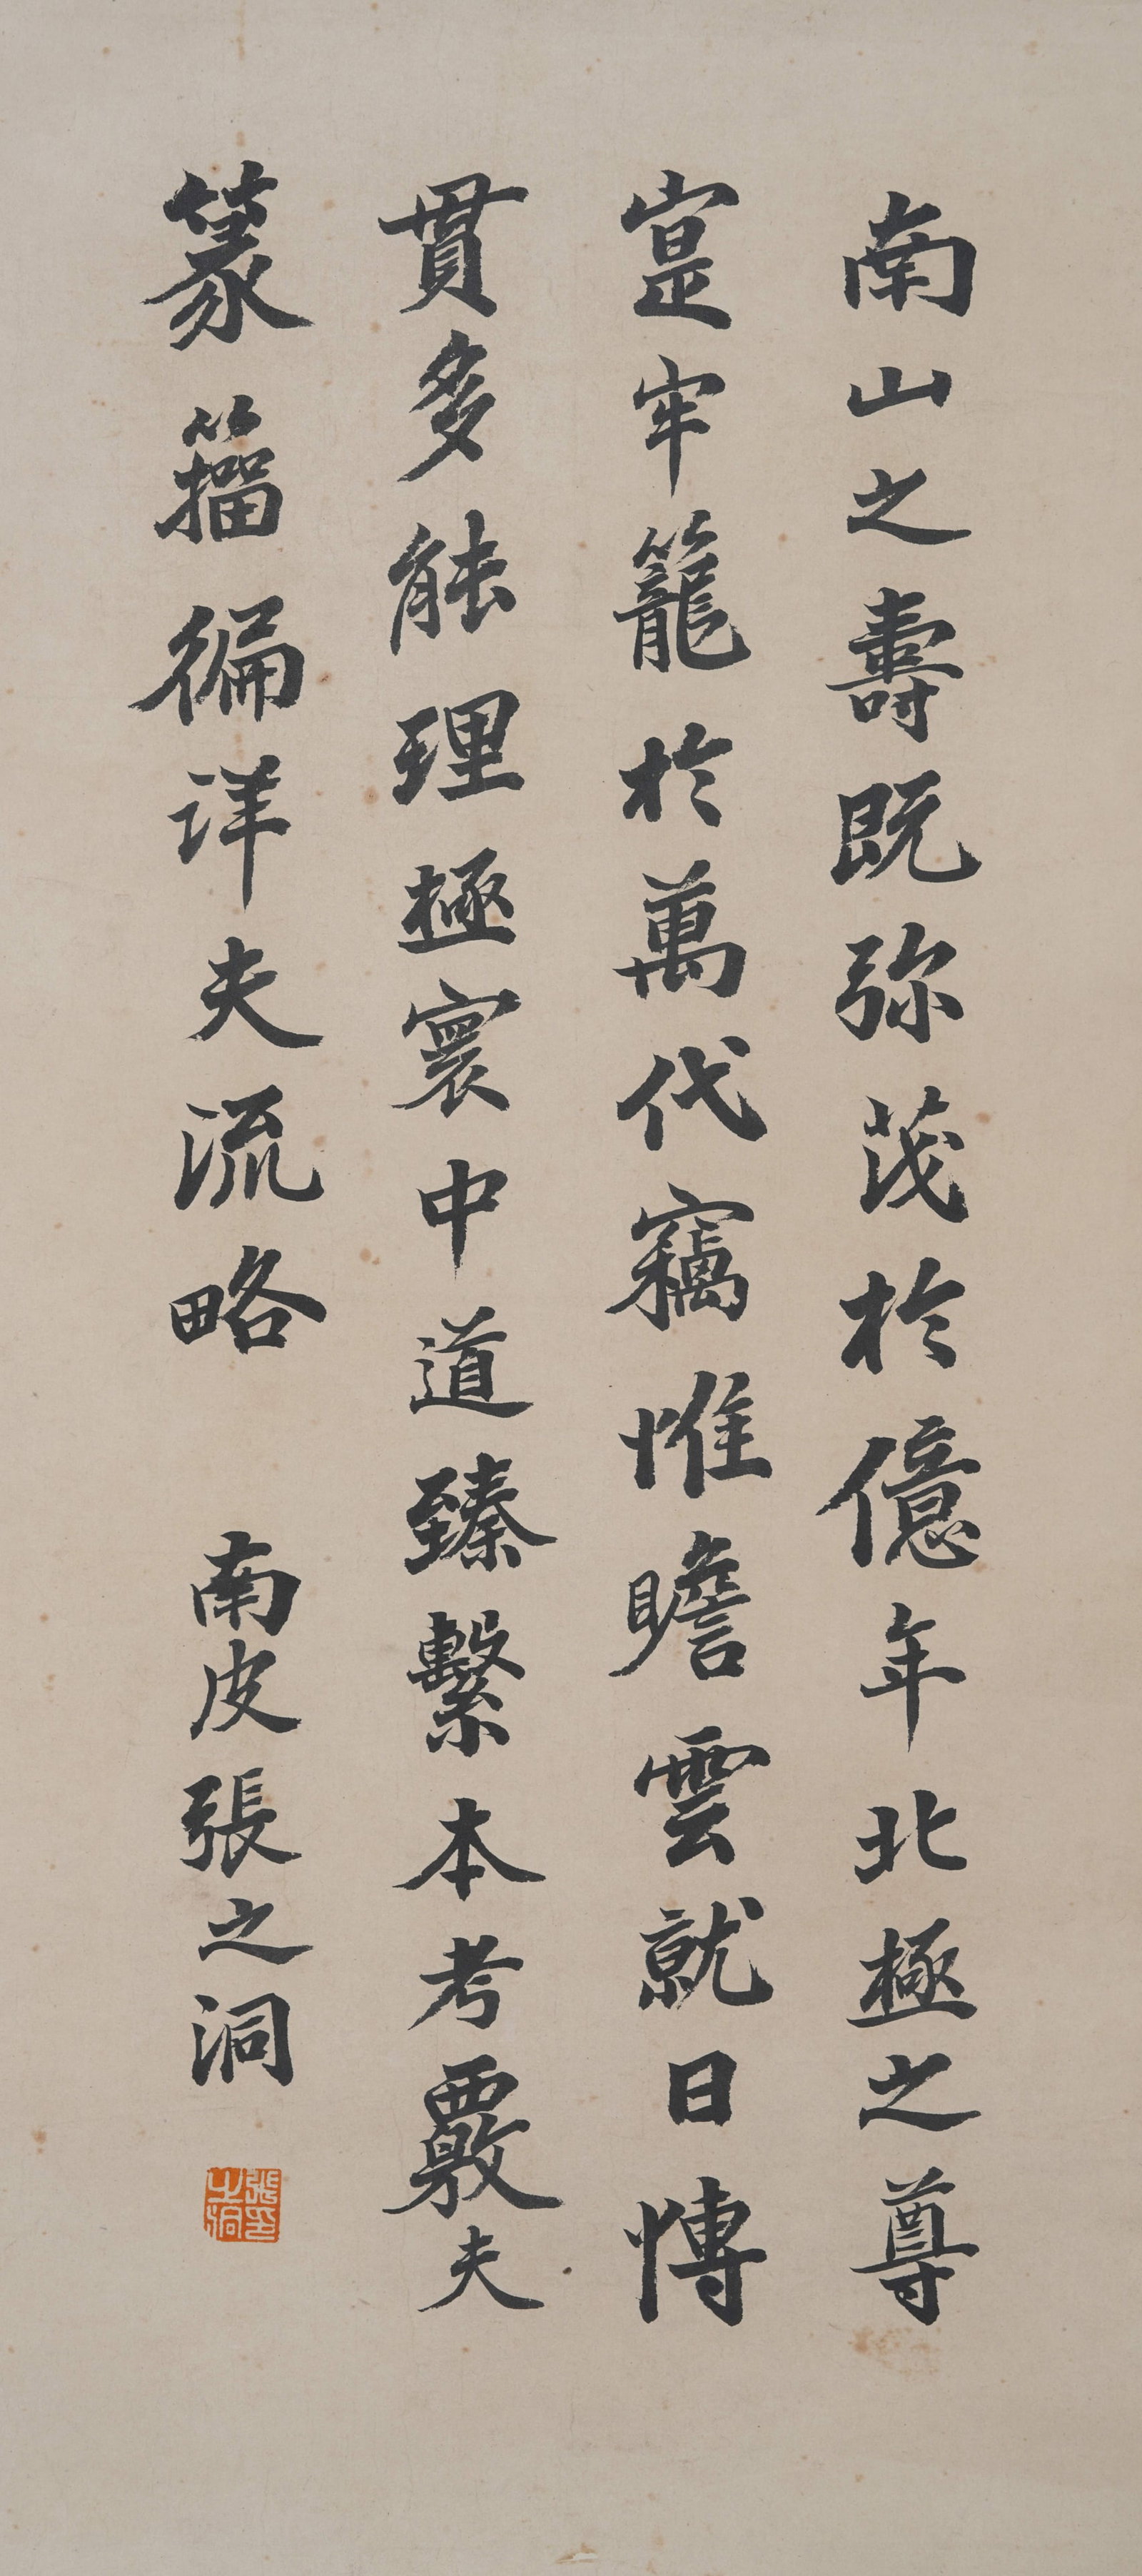 南山之壽既弥茂於億年北極之尊
寔牢籠於萬代竊惟瞻雲就日愽
貫多能理極寰中道臻繫本考覈夫
篆籀徧詳夫流略 南皮張之洞
張之洞印